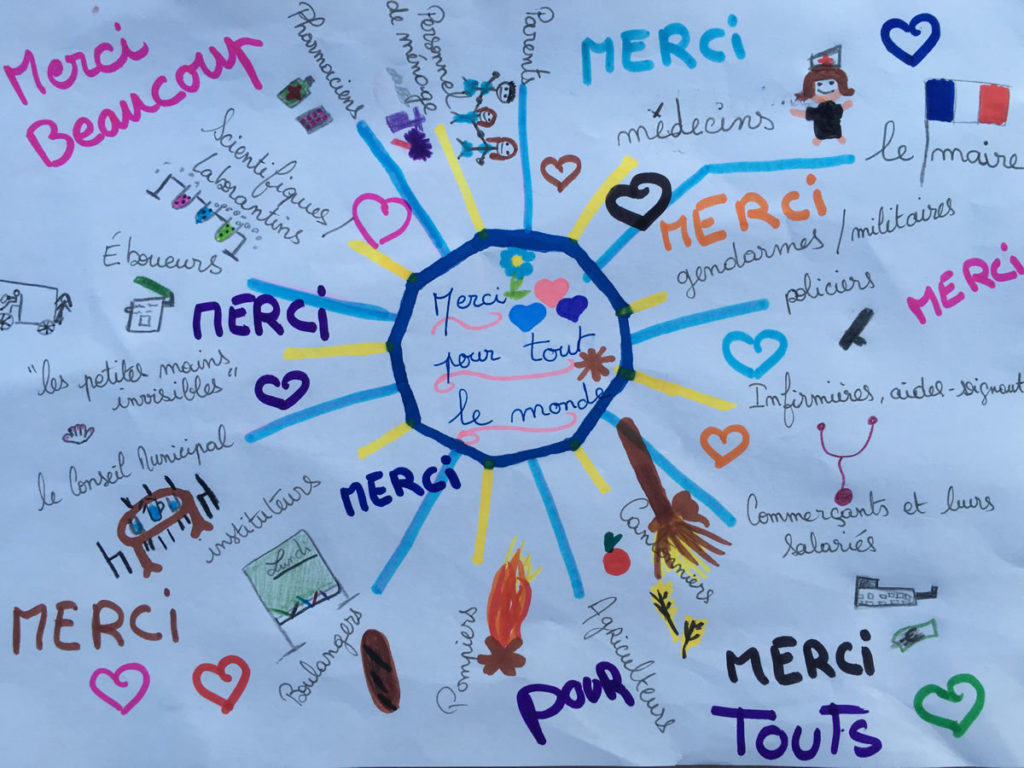 Merci
Beaucoup
Pharmaciens
Personnel
de ménage
Parents
MERCi
médecins
le maire
Scientifiques /
Laborantins
MERCi
gendarmes / militaires
Éboueurs
MERCi
policiers
MERCi
Merci
pour tout
le monde
"les petites mains
invisibles"
Infirmières, aides-soignants
le Conseil Municipal
MERCi
instituteurs
Lundi
Cantonniers
Commerçants et leurs
salariés
MERCi
Boulangers
Pompiers
Agriculteurs
MERCi
POUR
TOUTS